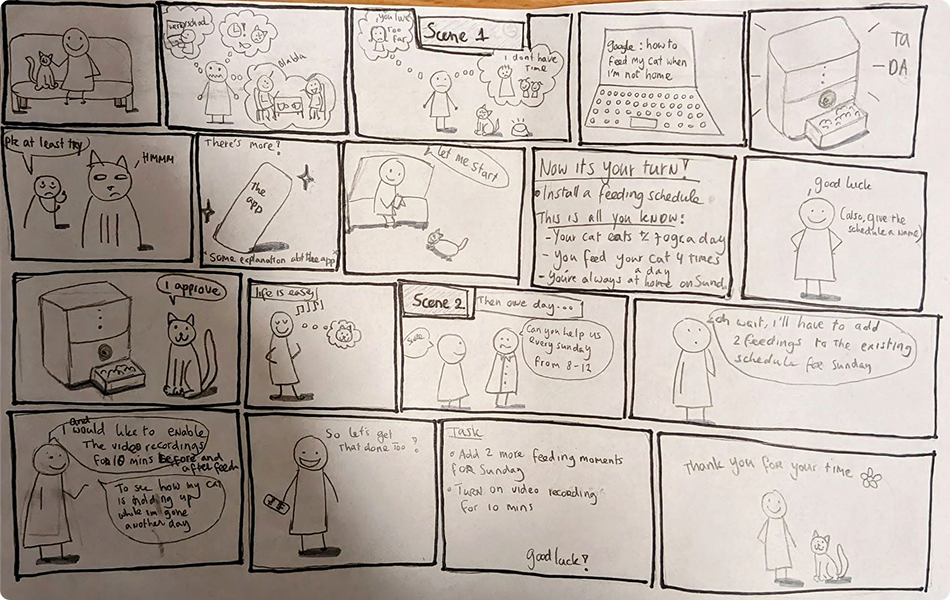 work/school
!
Blabla
, you live
Too
far
Scene 1
I dont have
Time
google: how to
feed my cat when
i'm not home
TA
-DA
plz at least try
HMMM
There's more!
The
app
"Some explanation abt the app"
let me start
Now it's your turn!
• Install a feeding schedule
This is all you know:
- Your cat eats % 70gr a day
- you feed your cat 4 times
a day
- You're always at home on Sund
, good luck
(also, give the
schedule a name)
I approve
life is easy
Scene 2
Then one day....
Can you help us
every sunday
from 8-12
oh wait, i'll have to add
2 feedings to the existing
schedule for Sunday
I would like to enable
The video recordings
for 10 mins before and
after feedn
To see how my cat
is holding up
while i'm gone
another day
So let's get
That done too!
Task
• Add 2 more feeding moments
for Sunday
• Turn on video recording
for 10 mins
good luck!
Thank you for your time